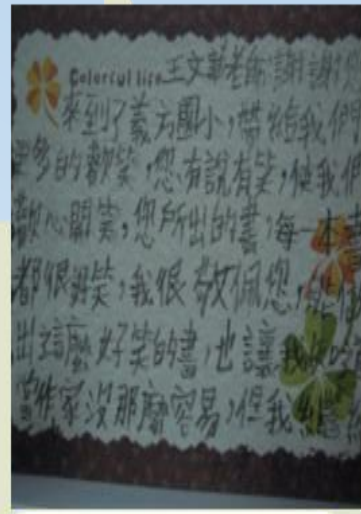 Colorful life 王文華老師謝謝您
來到了義方國小，帶給我們
更多的歡笑，您有說有笑，使我們
歡心開笑，您所出的書，每一本書
都很好笑，我很敬佩您，能
出這麼好笑的書，也讓我
當作家沒那麼容易，但我